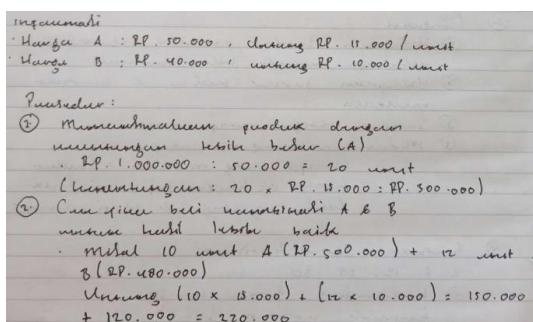 Informasi
· Harga A : RP. 50.000, Untung RP. 15.000 / unit
· Harga B : RP. 40.000, untung RP. 10.000 / unit
Prosedur :
1. Memaksimalkan produk dengan
keuntungan lebih besar (A)
. RP. 1.000.000 : 50.000 = 20 unit
(keuntungan : 20 x RP. 15.000 : RP. 300.000)
2. Cek jika beli kombinasi A & B
untuk hasil lebih baik
. Misal 10 unit A (RP. 500.000) + 12 unit
B (RP. 480.000)
Untung (10 x 15.000) + (12 x 10.000) = 150.000
+ 120.000 = 220.000